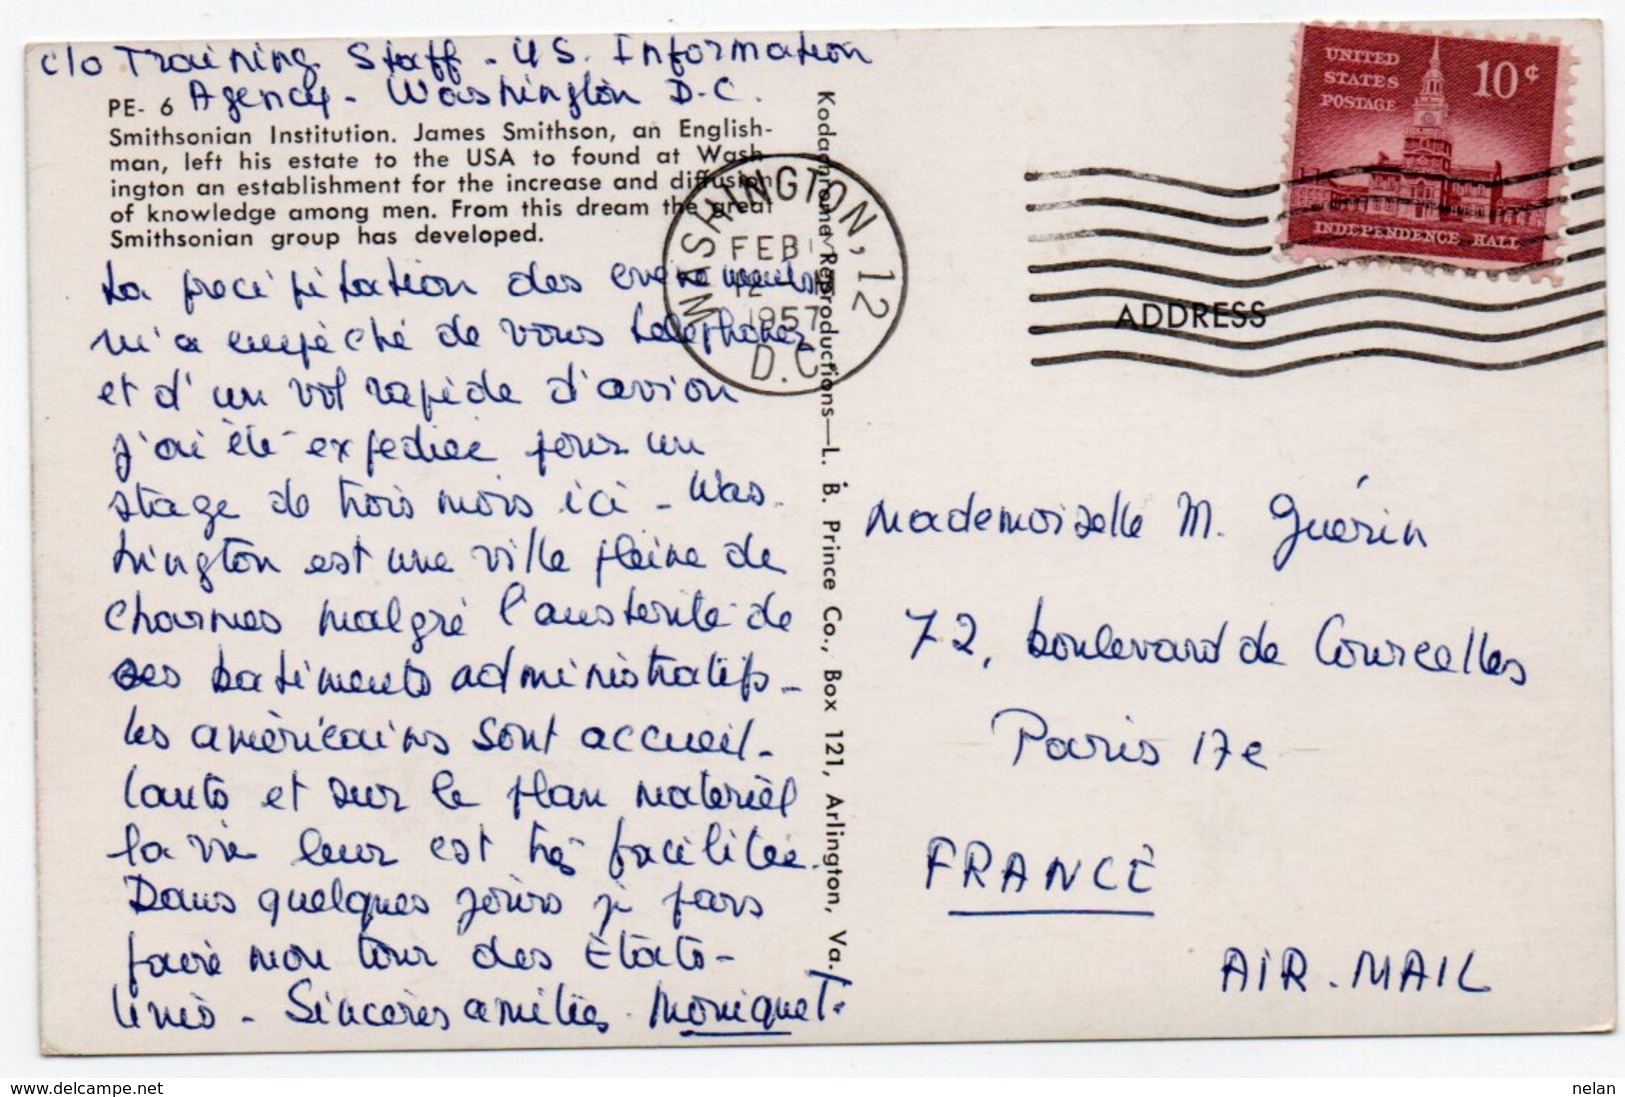 c/o Training Staff - US. Information
Agency - Washington D.C.
PE- 6
Smithsonian Institution. James Smithson, an English-
man, left his estate to the USA to found at Wash
ington an establishment for the increase and diffusion
of knowledge among men. From this dream the great
Smithsonian group has developed.
La precipitation des evenements
m'a empêché de vous telephoner
et d'un vol rapide d'avion
j'ai été expediée pour un
stage de trois mois ici - Was.
hington est une ville pleine de
charmes malgré l'austerité de
ses batiments administratifs -
les américains sont accueil-
lants et sur le plan matériel
la vie leur est très facilitée.
Dans quelques jours je pars
faire mon tour des États-
Unis - Sincères amitiés Monique T.
Kodachrome Reproductions—L. B. Prince Co., Box 121, Arlington, Va.
WASHINGTON, 12
FEB
12
1957
D.C.
UNITED
STATES
POSTAGE
10¢
INDEPENDENCE HALL
ADDRESS
Mademoiselle M. Guérin
72, boulevard de Courcelles
Paris 17e
FRANCE
AIR.MAIL
www.delcampe.net
nelan